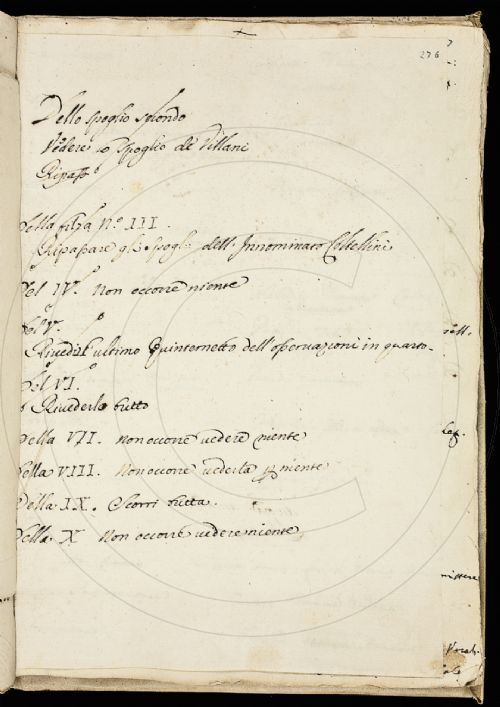 276
Dello spoglio secondo
Vedere lo spoglio de Villani
Ripass.o
Della filza N.o III.
Ripassare gli spogli dell'Innominato Coltellini
Del IV.o Non occorre niente
Del V.o
Rivedi l'ultimo Quinternetto dell'osservazioni in quarto.
Del VI.o
Rivederlo tutto
Della VII. Non occorre vedere niente
Della VIII. Non occorre vederla niente
Della IX. Scorri tutta.
Della X Non occorre vedere niente